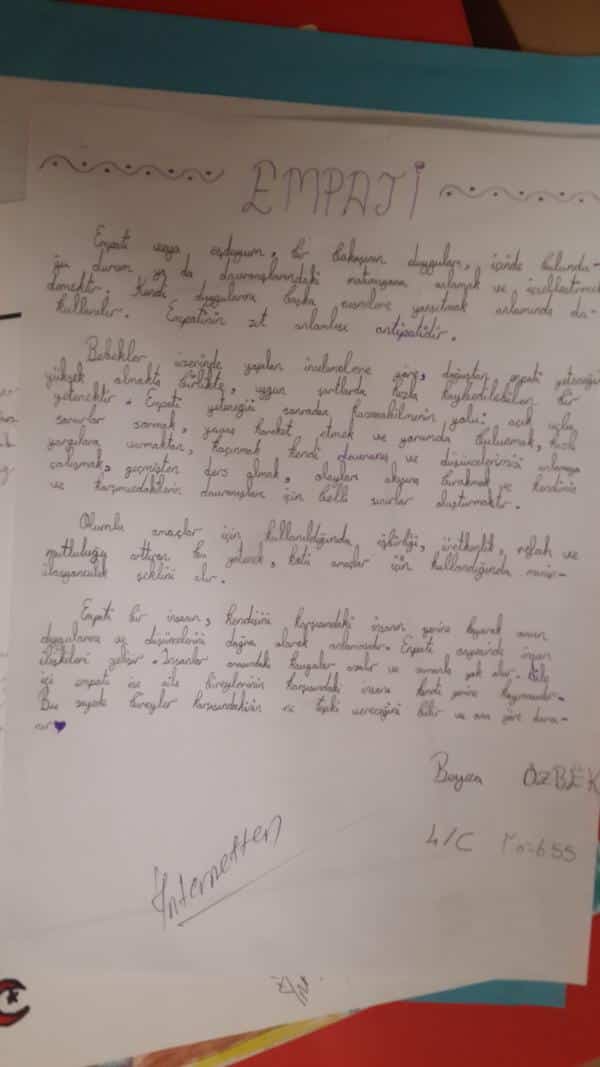 EMPATİ
Empati veya eşduyum, bir başkasının duyguları, içinde bulundu-
ğu durum ya da davranışlarındaki motivasyonu anlamak ve içselleştirmek
demektir. Kendi duygularını başka nesnelere yansıtmak anlamında da
kullanılır. Empatinin zıt anlamlısı antipatidir.
Bebekler üzerinde yapılan incelemelere göre, doğuştan empati yeteneği
yüksek olmakla birlikte, uygun şartlarda hızla kaybedilebilen bir
yetenektir. Empati yeteneği sonradan kazanabilmenin yolu: açık uçlu
sorular sormak, yavaş hareket etmek ve yorumda bulunmak, hızlı
yargılara varmaktan, kaçınmak kendi davranış ve düşüncelerimizi anlamaya
çalışmak, geçmişten ders almak, olayları akışına bırakmak ve kendimiz
ve karşımızdakilerin davranışları için belli sınırlar oluşturmaktır.
Olumlu amaçlar için kullanıldığında işbirliği, üretkenlik, refah ve
mutluluğu arttıran bu yetenek, kötü amaçlar için kullandığında manip-
ülasyonculuk şeklini alır.
Empati bir insanın, kendisini karşısındaki insanın yerine koyarak onun
duygularını ve düşüncelerini doğru olarak anlamasıdır. Empati sayesinde insan
ilişkileri gelişir. İnsanlar arasındaki kavgalar azalır ve zamanla yok olur. Aile
içi empati ise aile bireylerinin karşısındaki insanı kendi yerine koymasıdır.
Bu sayede bireyler karşısındakinin ne tepki vereceğini bilir ve ona göre davra-
nır
Beyza ÖZBEK
4/C No=655
İnternetten